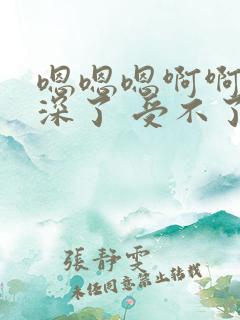 嗯嗯嗯啊啊
深了 受不了
張靜雯
未经同意禁止转载